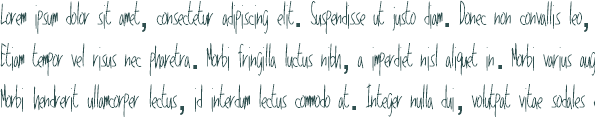 Lorem ipsum dolor sit amet, consectetur adipiscing elit. Suspendisse ut justo diam. Donec non convallis leo,
Etiam tempor vel risus nec pharetra. Morbi fringilla luctus nibh, a imperdiet nisl aliquet in. Morbi varius aug
Morbi hendrerit ullamcorper lectus, id interdum lectus commodo at. Integer nulla dui, volutpat vitae sodales